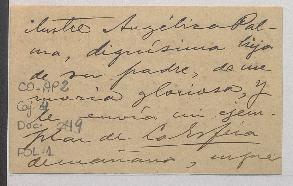 ilustre Angélica Pal-
ma, dignísima hija
de su padre, de me-
moria gloriosa, y
le envía un ejem-
plar de La Esfera
de mañana, 
CO-AP2
Caj. 4
Doc. 249
FOL. 1